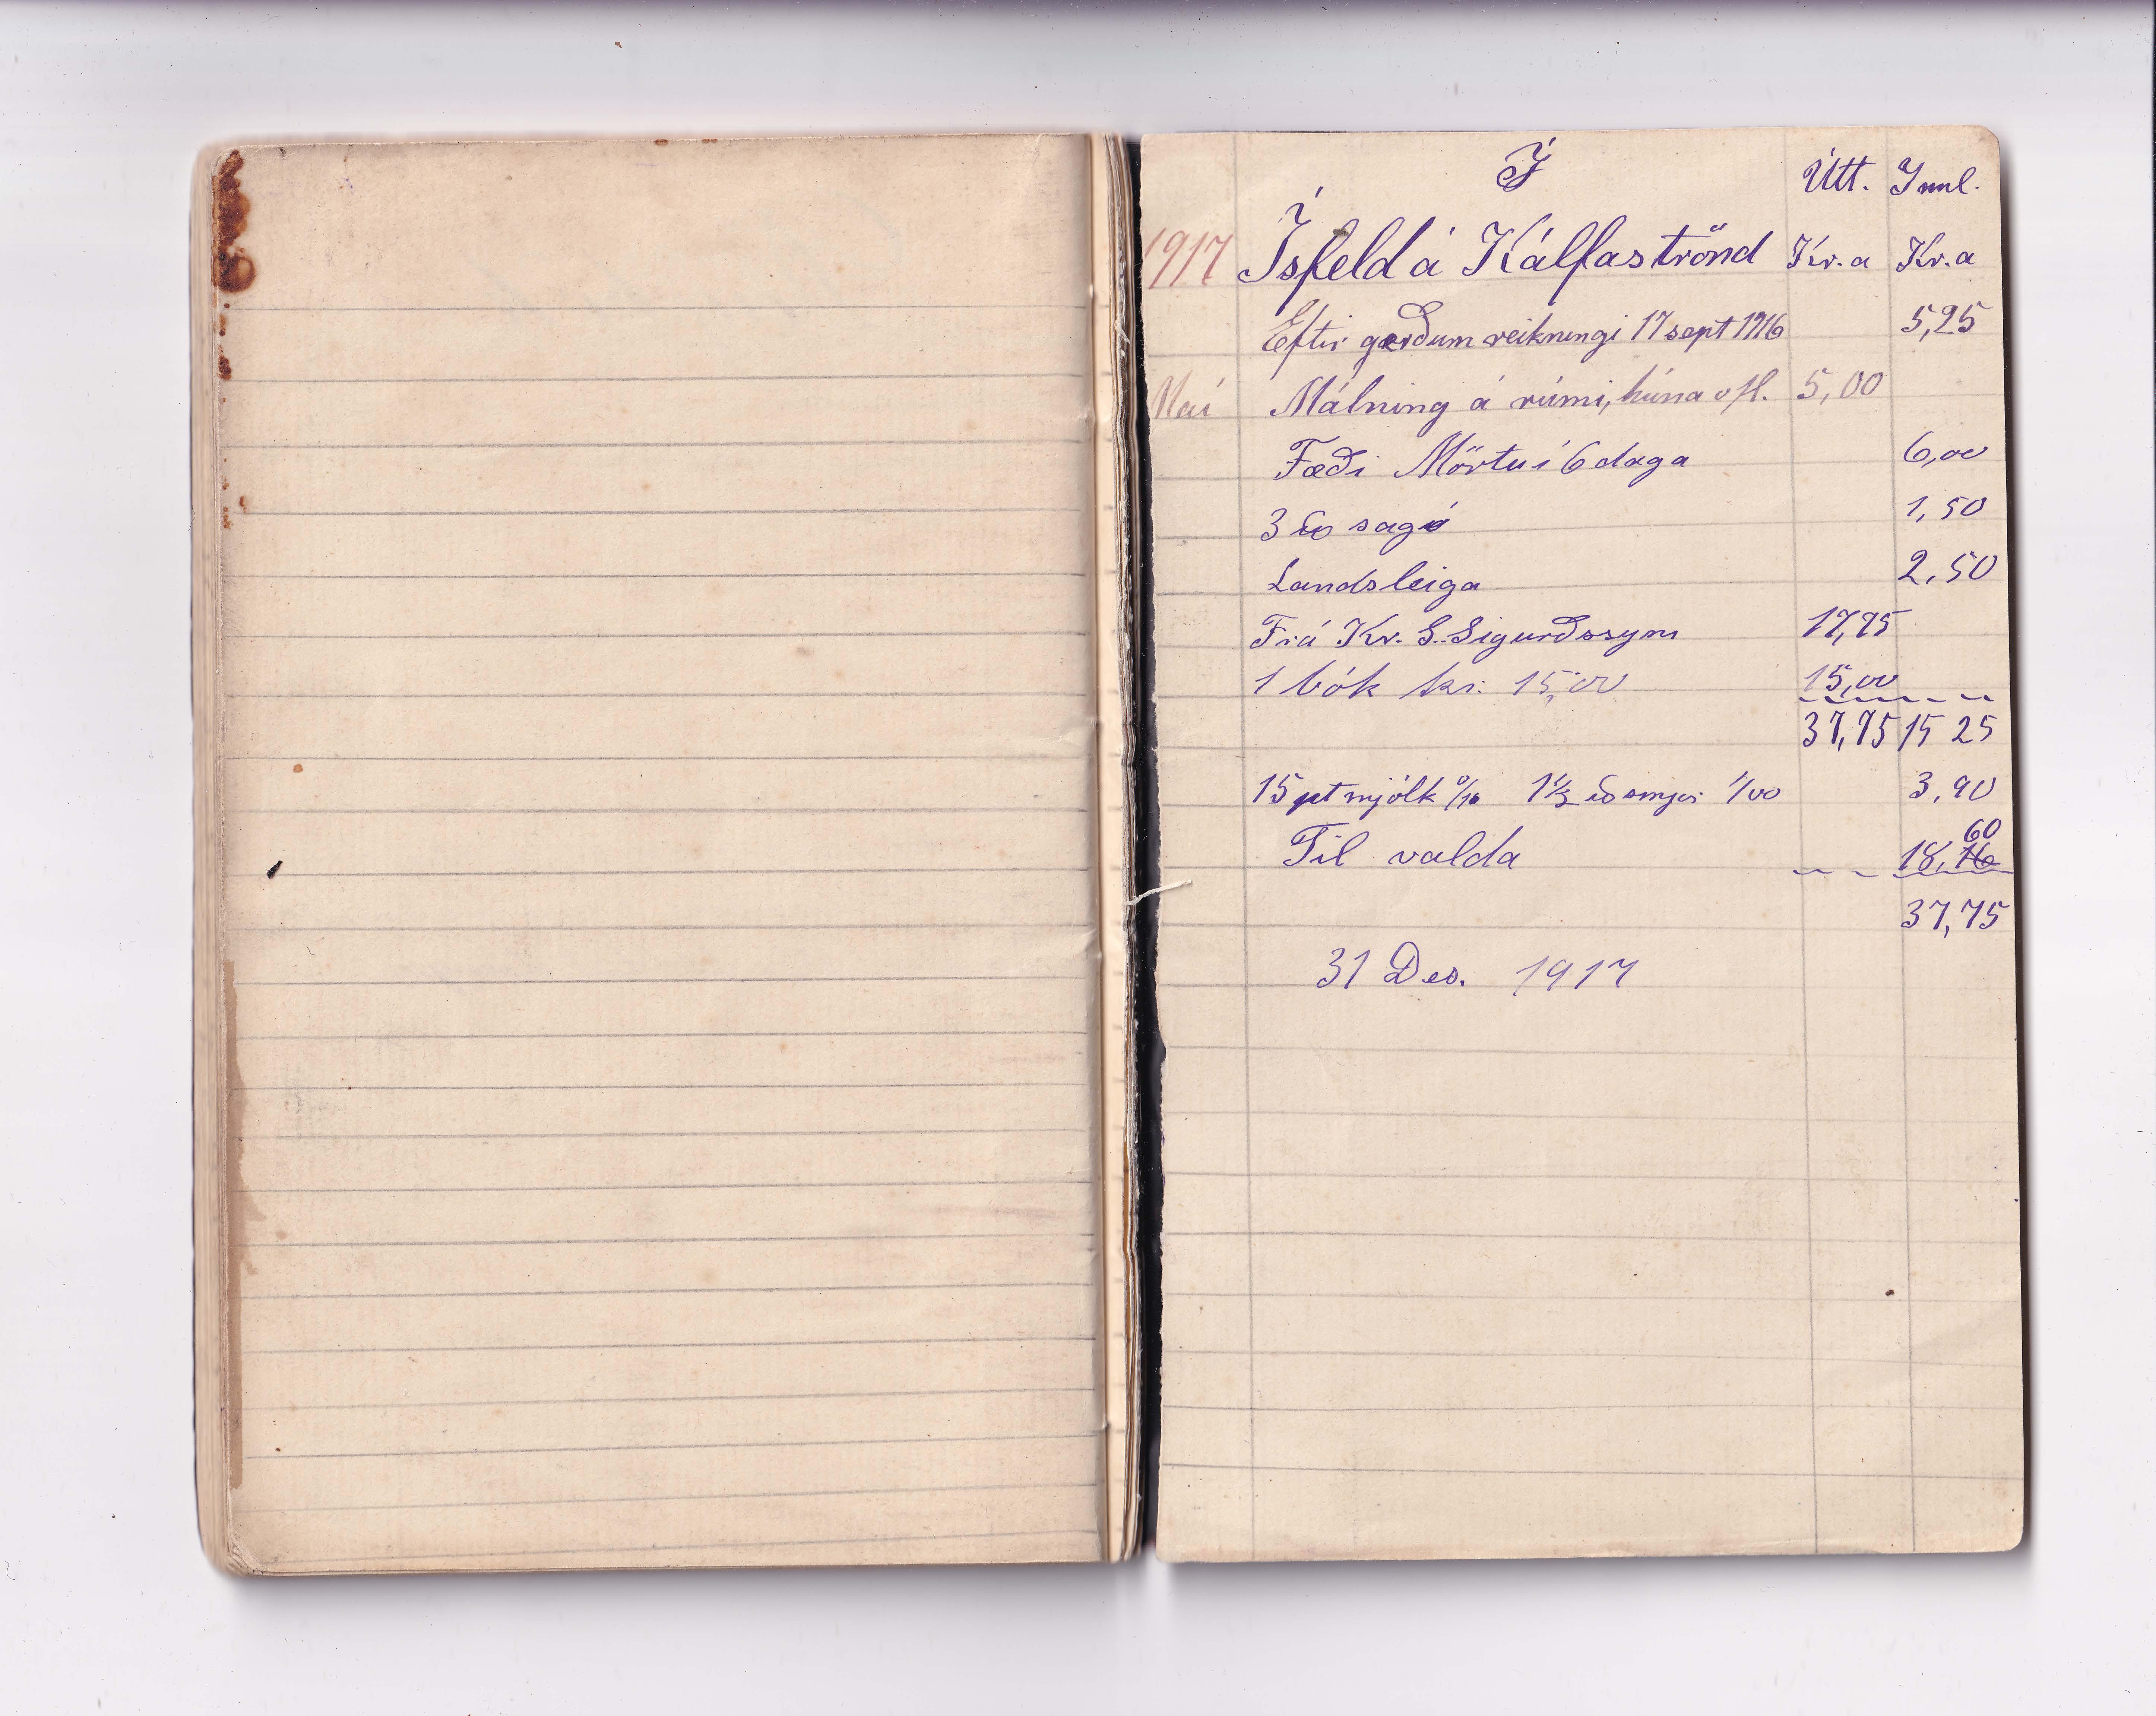 Í Útt. Innl.
1917 Ísfeld á Kálfaströnd Kr. a Kr. a
Eftir gerðum reikningi 17 sept 1916 5,25
Maí Málning á rúmi, húna ofl. 5,00
Fæði Mörtu í 6 daga 6,00
3 ℔ sagó 1,50
Landsleiga 2,50
Frá Kr. S. Sigurðssyni 17,75
1 bók kr: 15,00 15,00
37,75 15 25
15 pt mjólk 0/16 1½ ℔ smjör 1/00 3,90
60
Til valda 18,16
37,75
31 Des. 1917